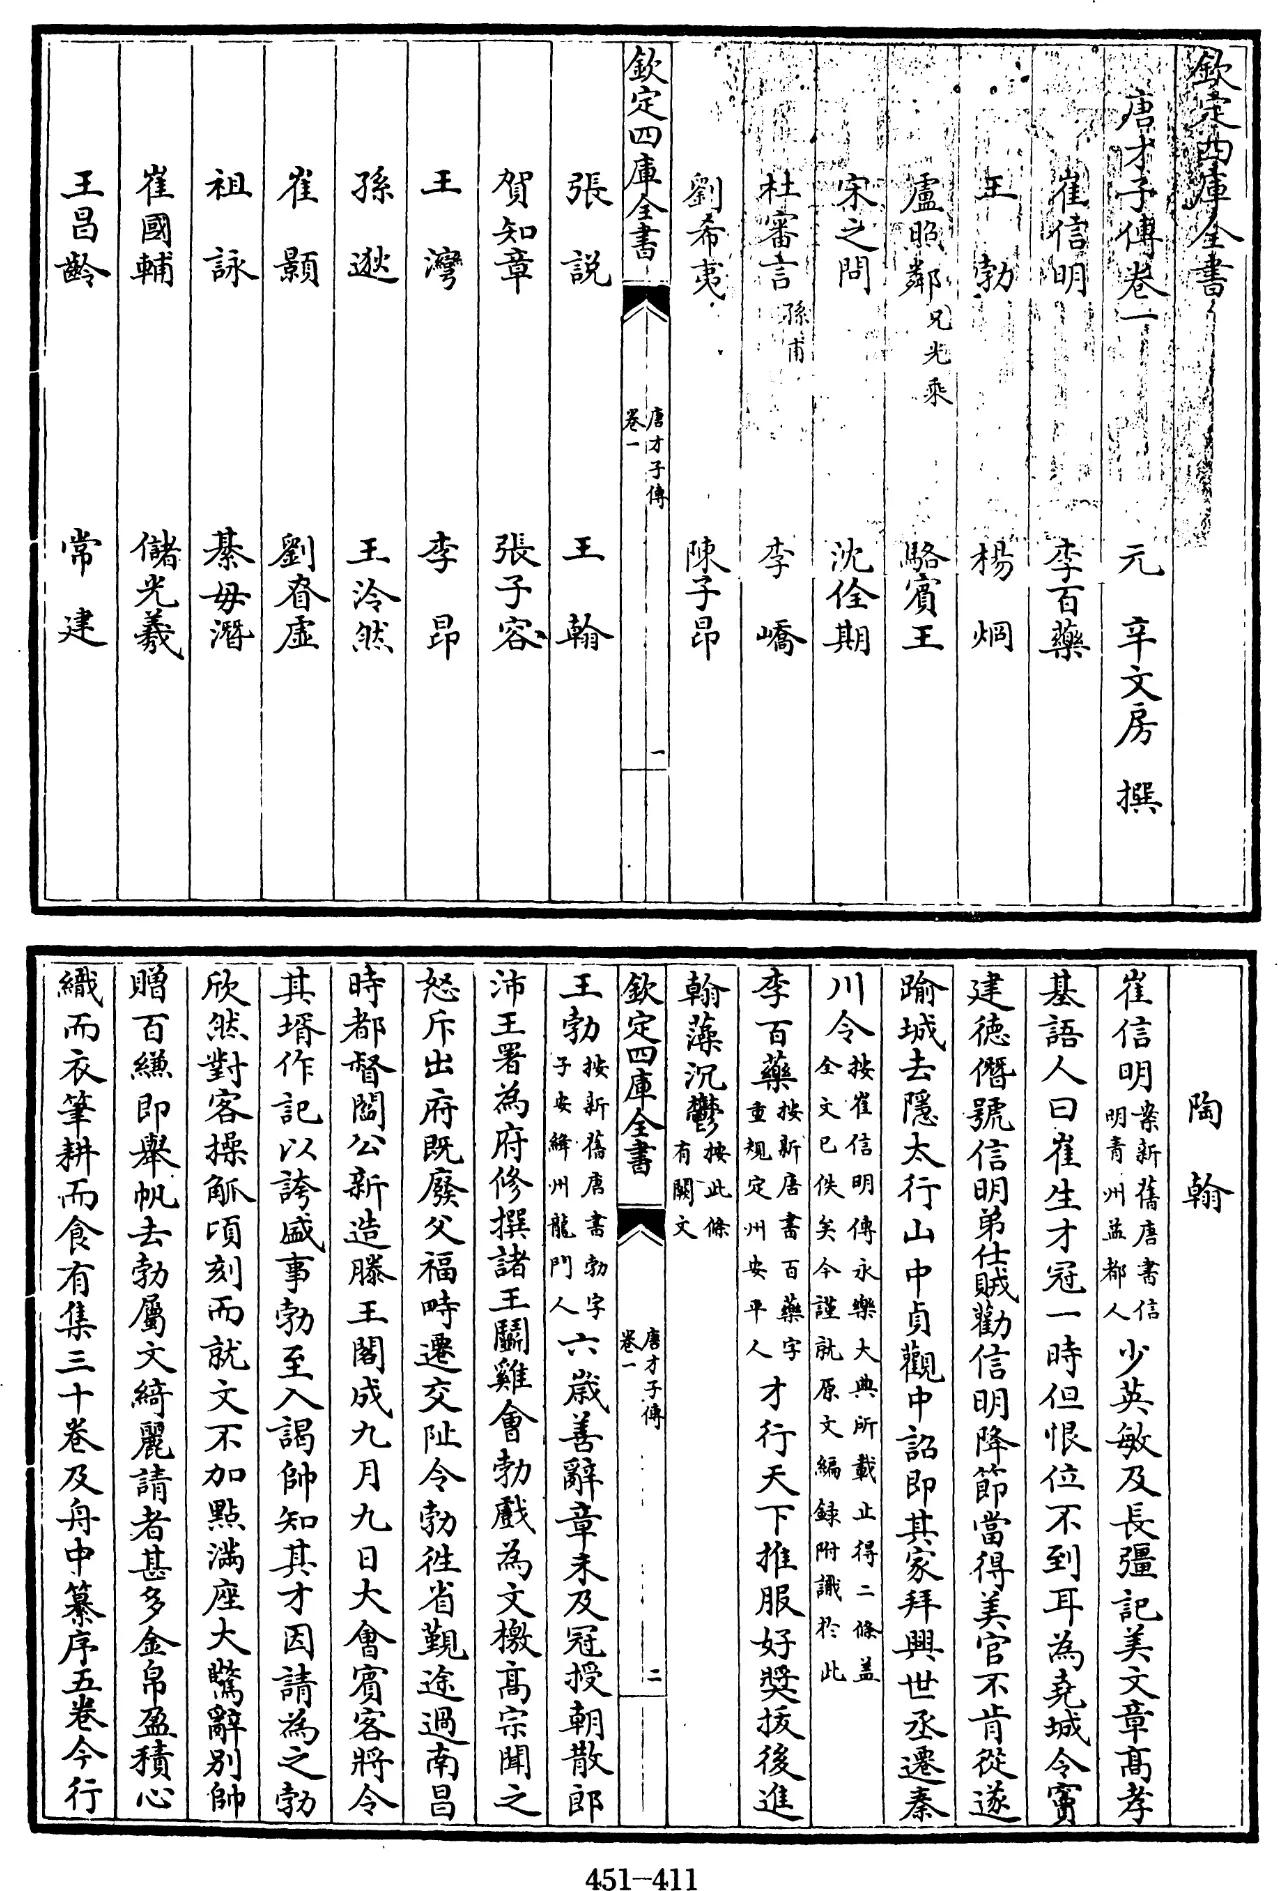 欽定四庫全書
唐才子傳卷一
元 辛文房 撰
崔信明 李百藥
王勃 楊烱
盧照鄰 兄光乘 駱賓王
宋之問 沈佺期
杜審言 孫甫 李嶠
劉希夷 陳子昂
欽定四庫全書
唐才子傳
卷一
一
張說 王翰
賀知章 張子容
王灣 李昂
孫逖 王泠然
崔顥 劉眘虛
祖詠 綦毋潛
崔國輔 儲光羲
王昌齡 常建
陶翰
崔信明案新舊唐書信明青州益都人少英敏及長彊記美文章髙孝
基語人曰崔生才冠一時但恨位不到耳為堯城令竇
建德僭號信明弟仕賊勸信明降節當得美官不肯從遂
踰城去隱太行山中貞觀中詔即其家拜興世丞遷秦
川令按崔信明傳永樂大典所載止得二條盖全文已佚矣今謹就原文編録附識於此
李百藥按新唐書百藥字重規定州安平人才行天下推服好奬拔後進
翰藻沉鬱按此條有闕文
欽定四庫全書
唐才子傳
卷一
二
王勃按新舊唐書勃字子安絳州龍門人六歳善辭章未及冠授朝散郎
沛王署為府修撰諸王鬭雞會勃戲為文檄髙宗聞之
怒斥出府既廢父福畤遷交阯令勃徃省覲途過南昌
時都督閻公新造滕王閣成九月九日大會賓客將令
其壻作記以誇盛事勃至入謁帥知其才因請為之勃
欣然對客操觚頃刻而就文不加點滿座大驚辭别帥
贈百縑即舉帆去勃屬文綺麗請者甚多金帛盈積心
織而衣筆耕而食有集三十卷及舟中纂序五卷今行
451-411